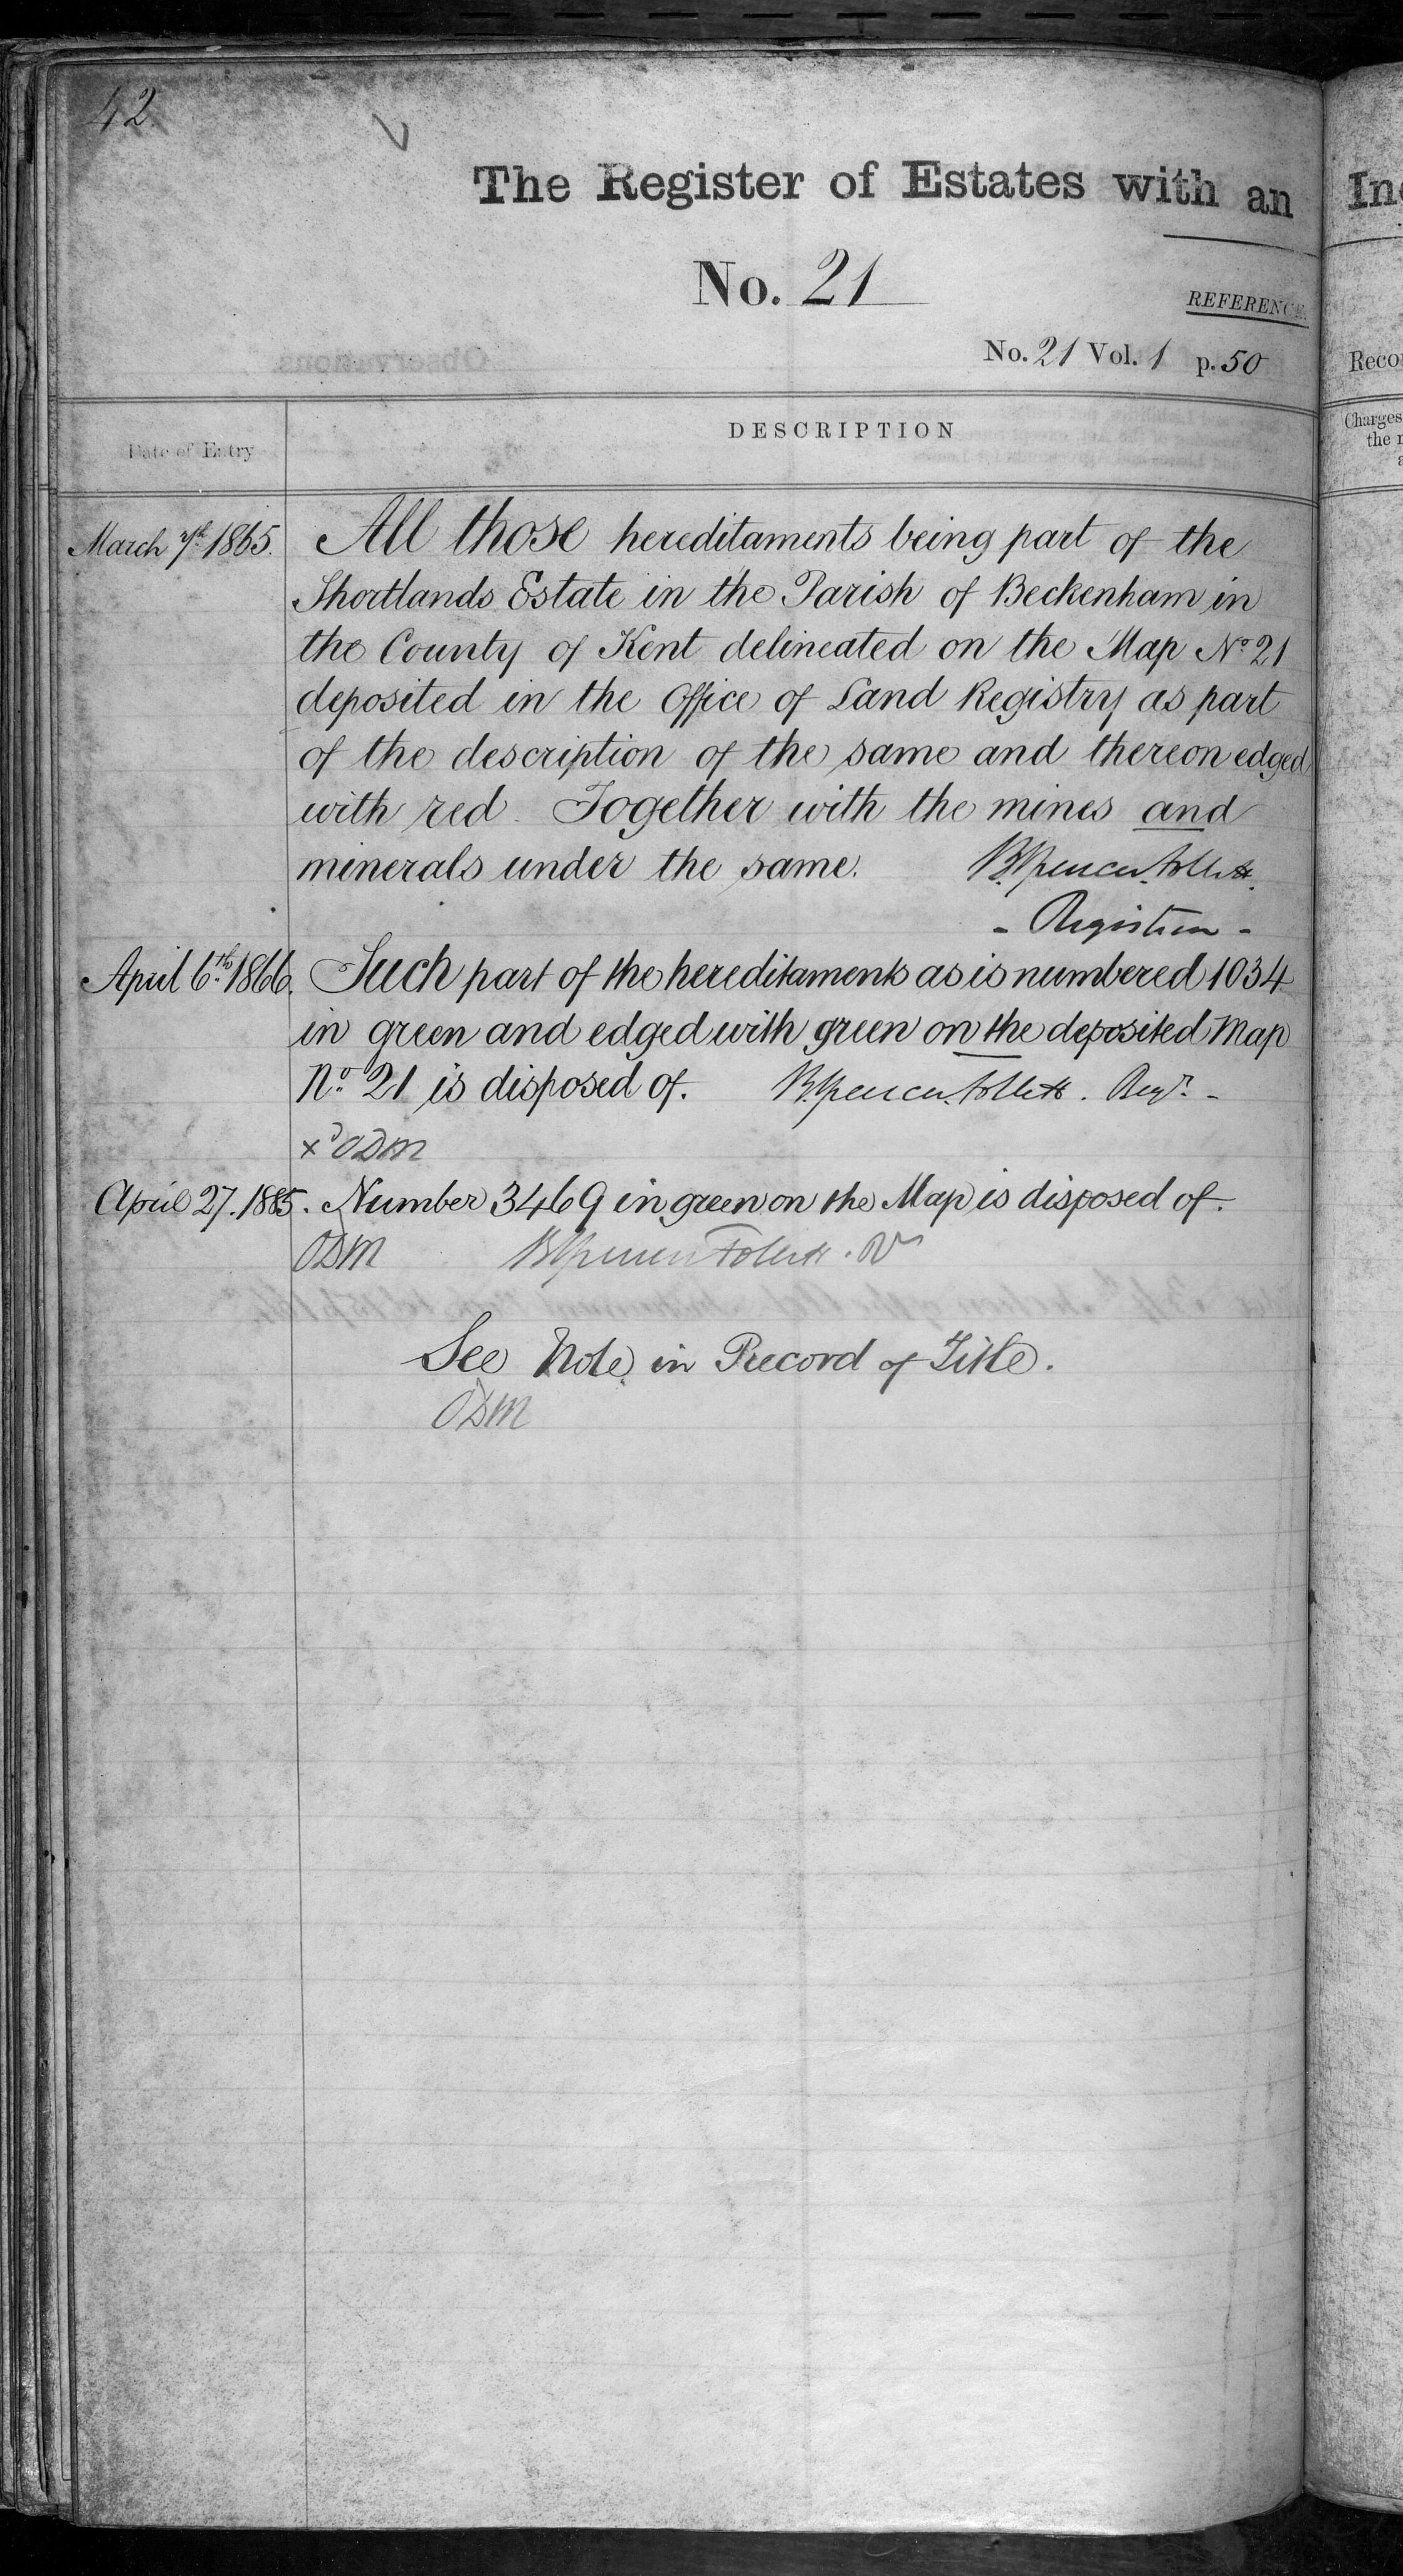 42.
The Register of Estates with an
No. 21
REFERENCE.
No. 21 Vol. 1 p. 50
Date of Entry
DESCRIPTION
March 7th 1865. All those hereditaments being part of the
Shortlands Estate in the Parish of Beckenham in
the County of Kent delineated on the Map No 21
deposited in the Office of Land Registry as part
of the description of the same and thereon edged
with red. Together with the mines and
minerals under the same. B. Spencer Follett.
- Registrar -
April 6th 1866. Such part of the hereditaments as is numbered 1034
in green and edged with green on the deposited Map
No. 21 is disposed of. B. Spencer Follett. Regr. -
xd ODM
April 27. 1885. Number 3469 in green on the Map is disposed of.
ODM B Spencer Follett.
See Note in Record of Title.
ODM
Charges